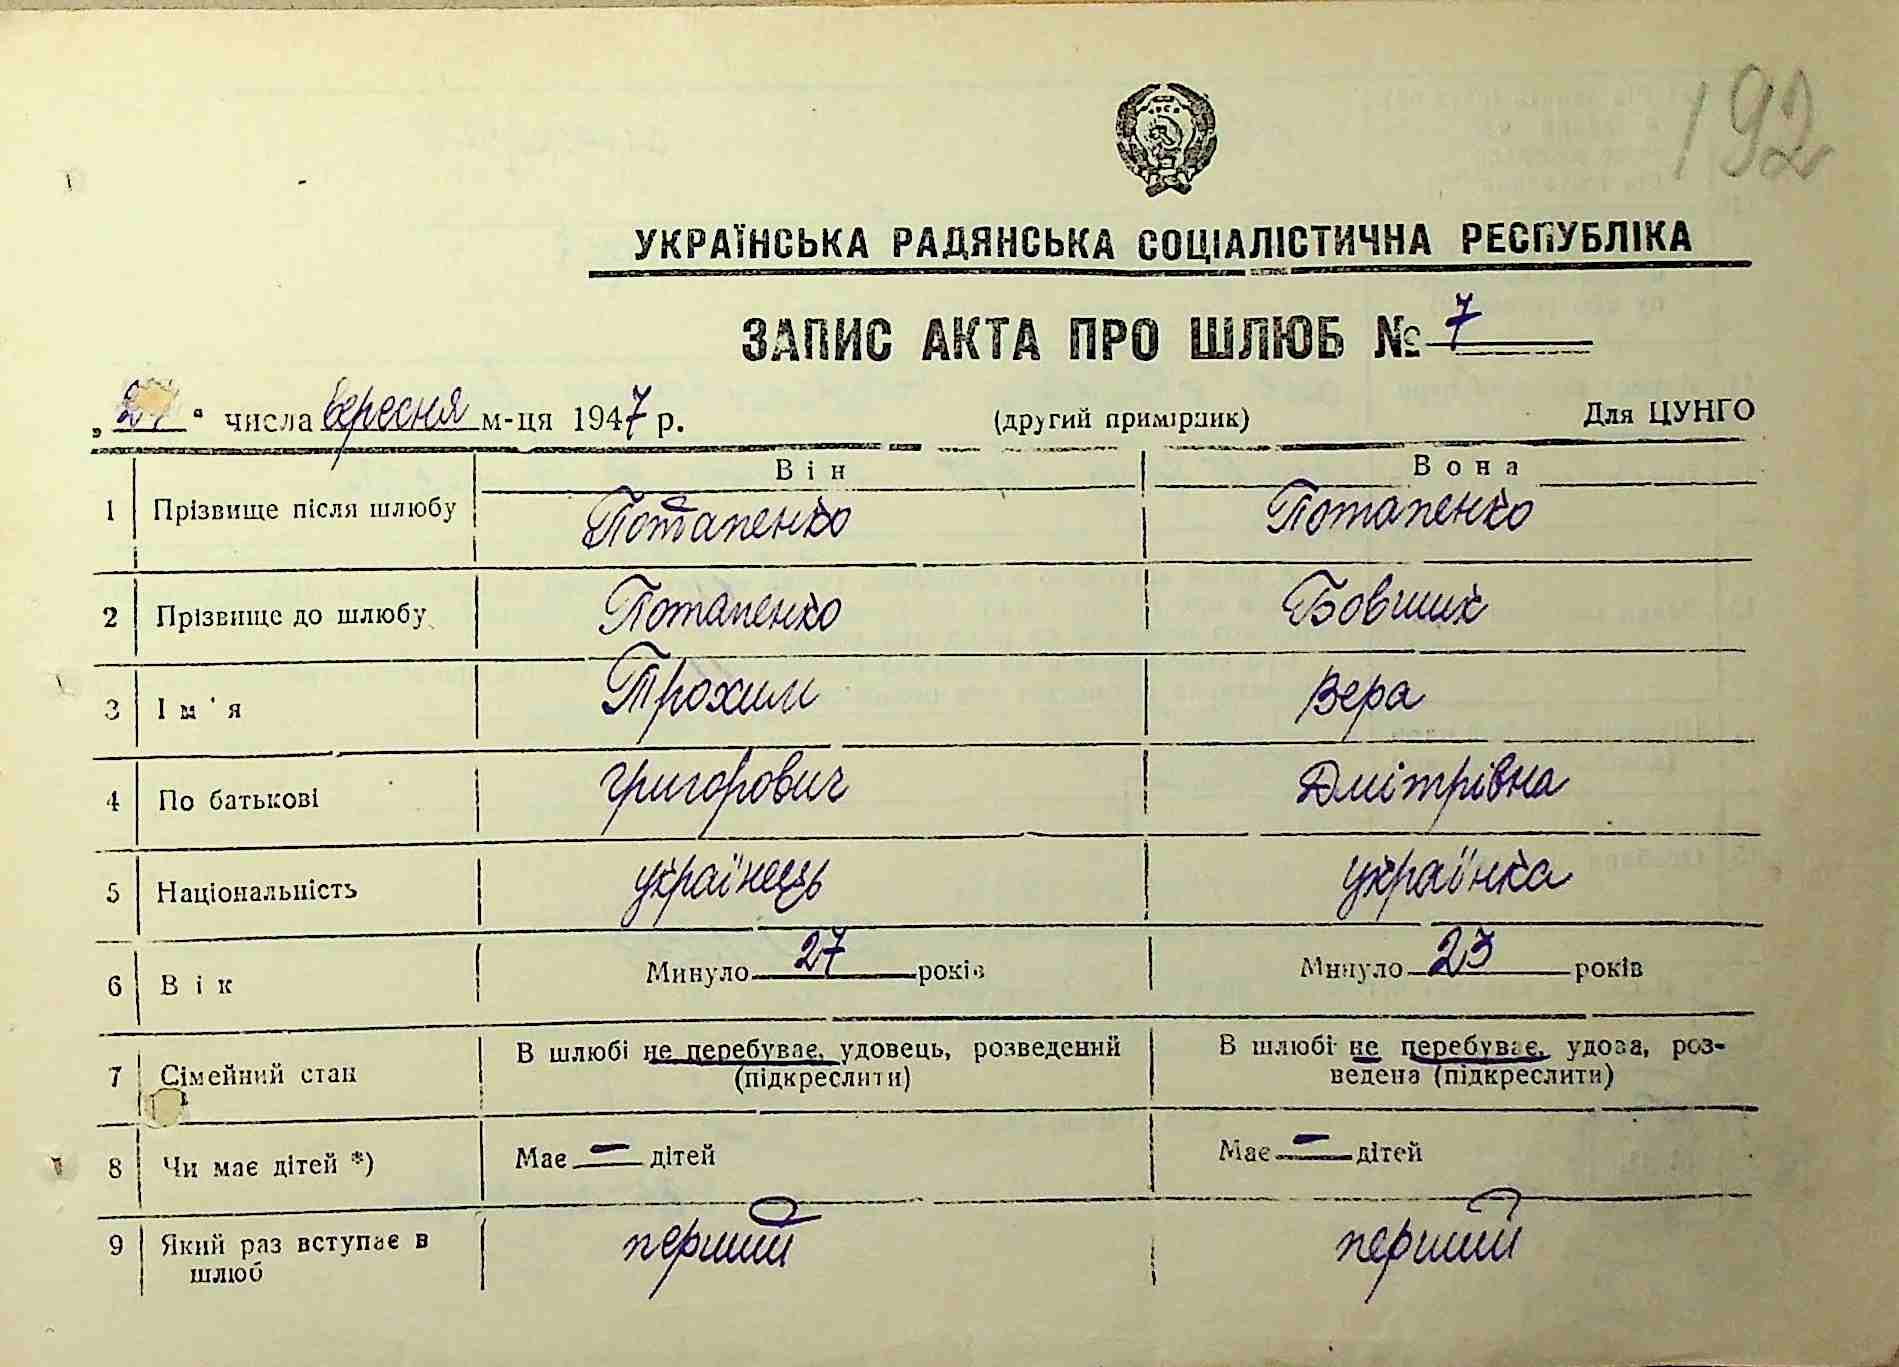 192
УКРАЇНСЬКА РАДЯНСЬКА СОЦІАЛІСТИЧНА РЕСПУБЛІКА
ЗАПИС АКТА ПРО ШЛЮБ № 7
„ “ числа вересня м-ця 1947 р. (другий примірник) Для ЦУНГО
Він Вона
1 Прізвище після шлюбу Потапенко Потапенко
2 Прізвище до шлюбу Потапенко Бовших
3 Ім'я Трохим Вера
4 По батькові Григорович Дмітрівна
5 Національність українець українка
6 Вік Минуло 27 років Минуло 23 років
7 Сімейний стан В шлюбі не перебуває, удовець, розведений (підкреслити) В шлюбі не перебуває, удова, роз-
ведена (підкреслити)
8 Чи має дітей *) Має — дітей Має — дітей
9 Який раз вступає в перший перший
шлюб